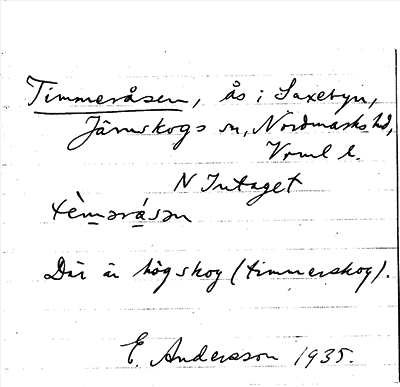 Timmeråsen, ås i Saxebyn,
Järnskogs sn, Nordmarks hd,
Vrml l.
N Intaget
tèməråsən
Där är högskog (timmerskog).
E. Andersson 1935.